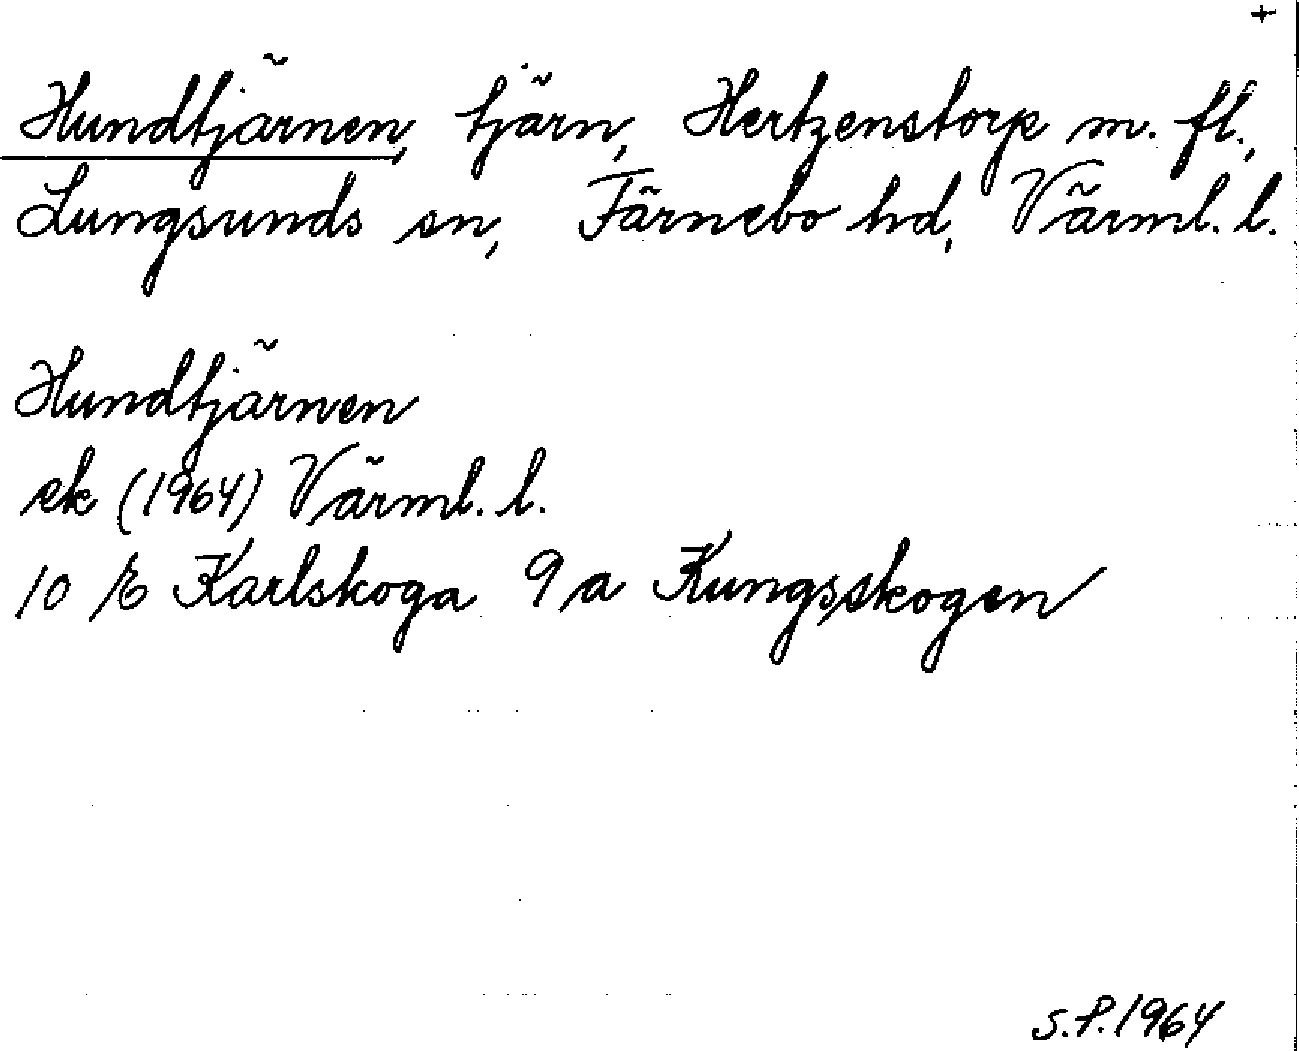 +
Hundtjärnen, tjärn, Hertzenstorp m. fl.,
Lungsunds sn, Färnebo hd, Värml. l.
Hundtjärnen
ek (1964) Värml. l.
10 E Karlskoga 9 a Kungsskogen
S.P. 1964